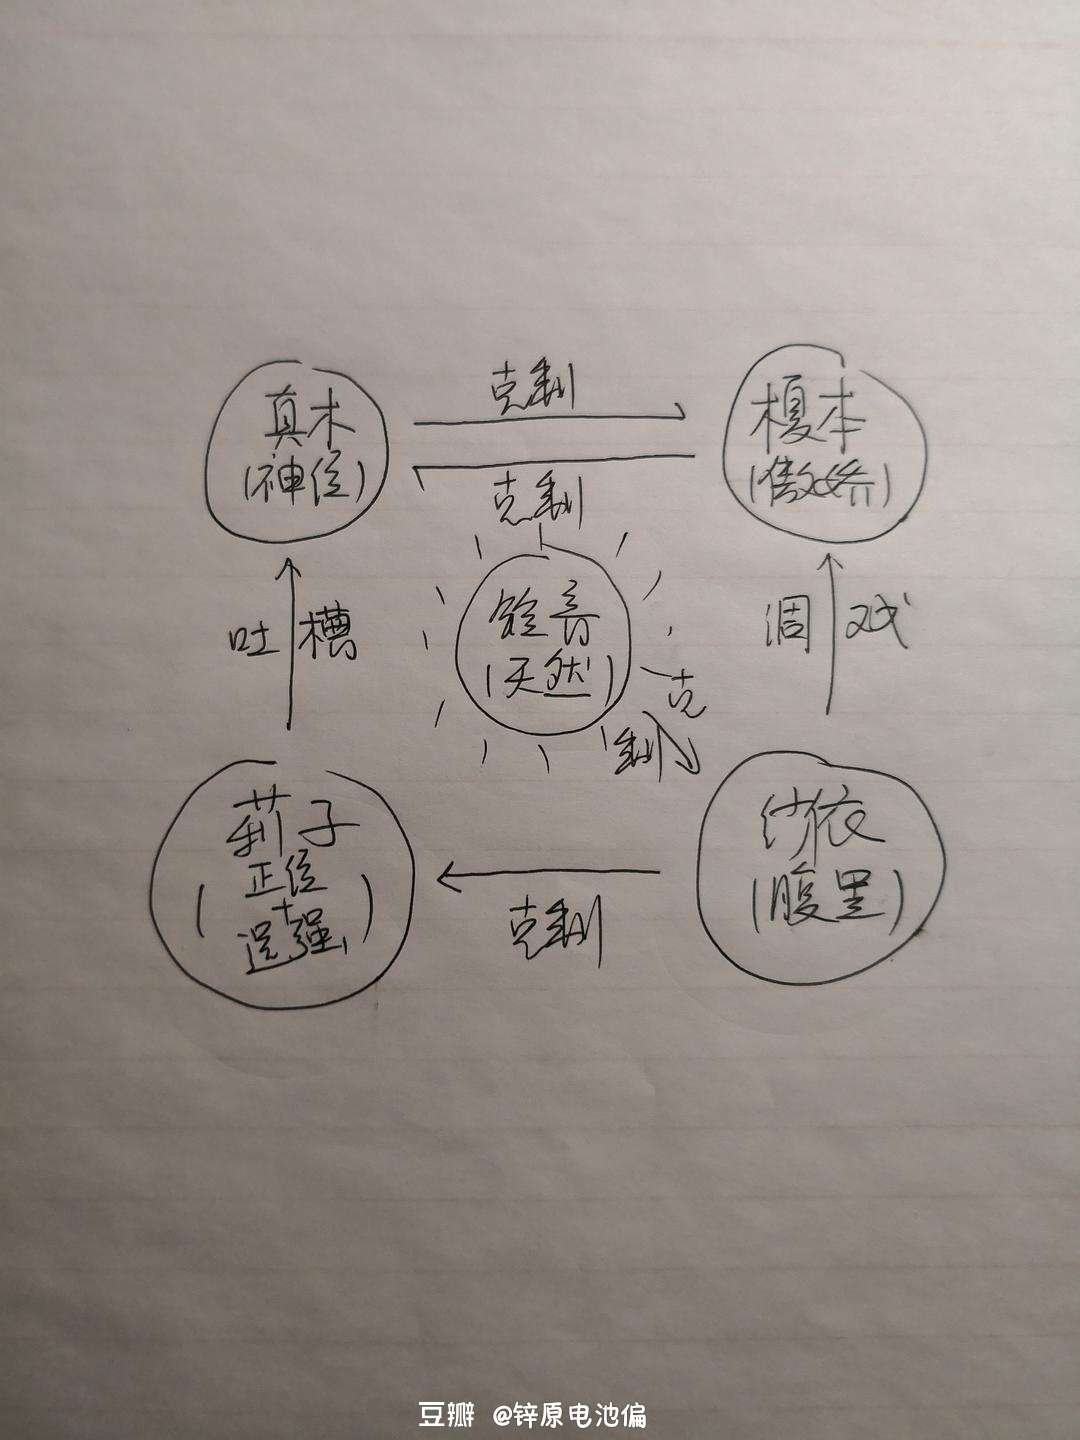 克制
真木
(神位)
榎本
(傲娇)
克制
铃音
(天然)
吐槽
调戏
克
制
莉子
(正位
+
逞强)
纱依
(腹黑)
克制
豆瓣 @锌原电池偏